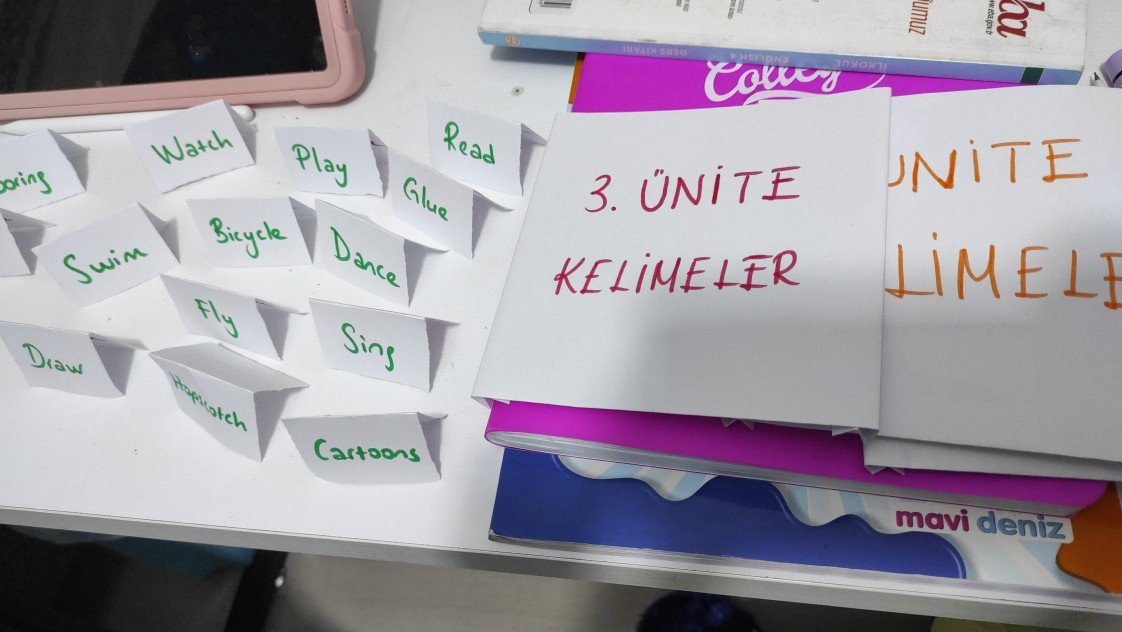 eba
www.eba.gov.tr
umuz
İLKOKUL ENGLISH 4 DERS KİTABI
Colley
Read
Watch
Play
Glue
Bicycle
Dance
Swim
Fly
Sing
Draw
Hopscotch
Cartoons
3. ÜNİTE
KELİMELER
ÜNİTE
LİMELE
mavi deniz